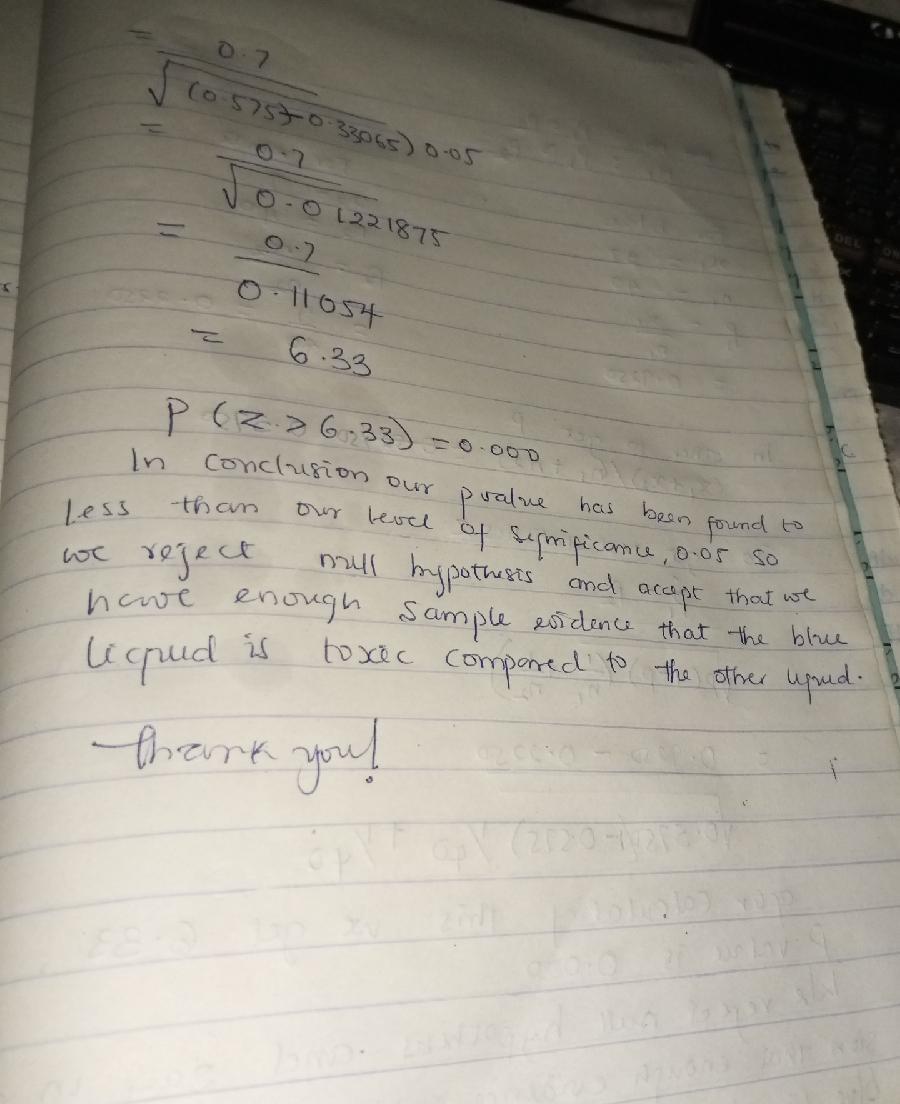 =
0.7
√(0.575)-0.33065) 0.05
=
0.7
√0.01221875
=
0.7
0.11054
= 6.33
P (Z > 6.33) = 0.000
In conclusion our pvalue has been found to
less than our level of significance, 0.05 so
we reject null hypothesis and accept that we
have enough sample evidence that the blue
licqud is toxic compared to the other liqud.
Thank you!